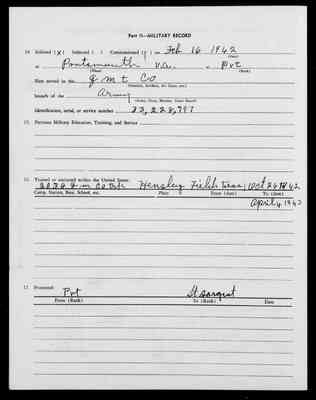 Part II—MILITARY RECORD
14. Enlisted (x) Inducted ( ) Commissioned ( ) on Feb 16 1942
(Date)
at Portsmouth V.a. as Pvt
(Place) (Rank)
Has served in the Q m t Co
(Infantry, Artillery, Air Corps, etc.)
branch of the army
(Army, Navy, Marine, Coast Guard)
Identification, serial, or service number 33,228,797
15. Previous Military Education, Training, and Service
16. Trained or stationed within the United States:
Hensley Field Texas Oct 24 42
Camp, Station, Base, School, etc. Place From (date) To (date)
April 4 1943
17. Promoted:
Pvt St sargent
From (Rank) To (Rank) Date